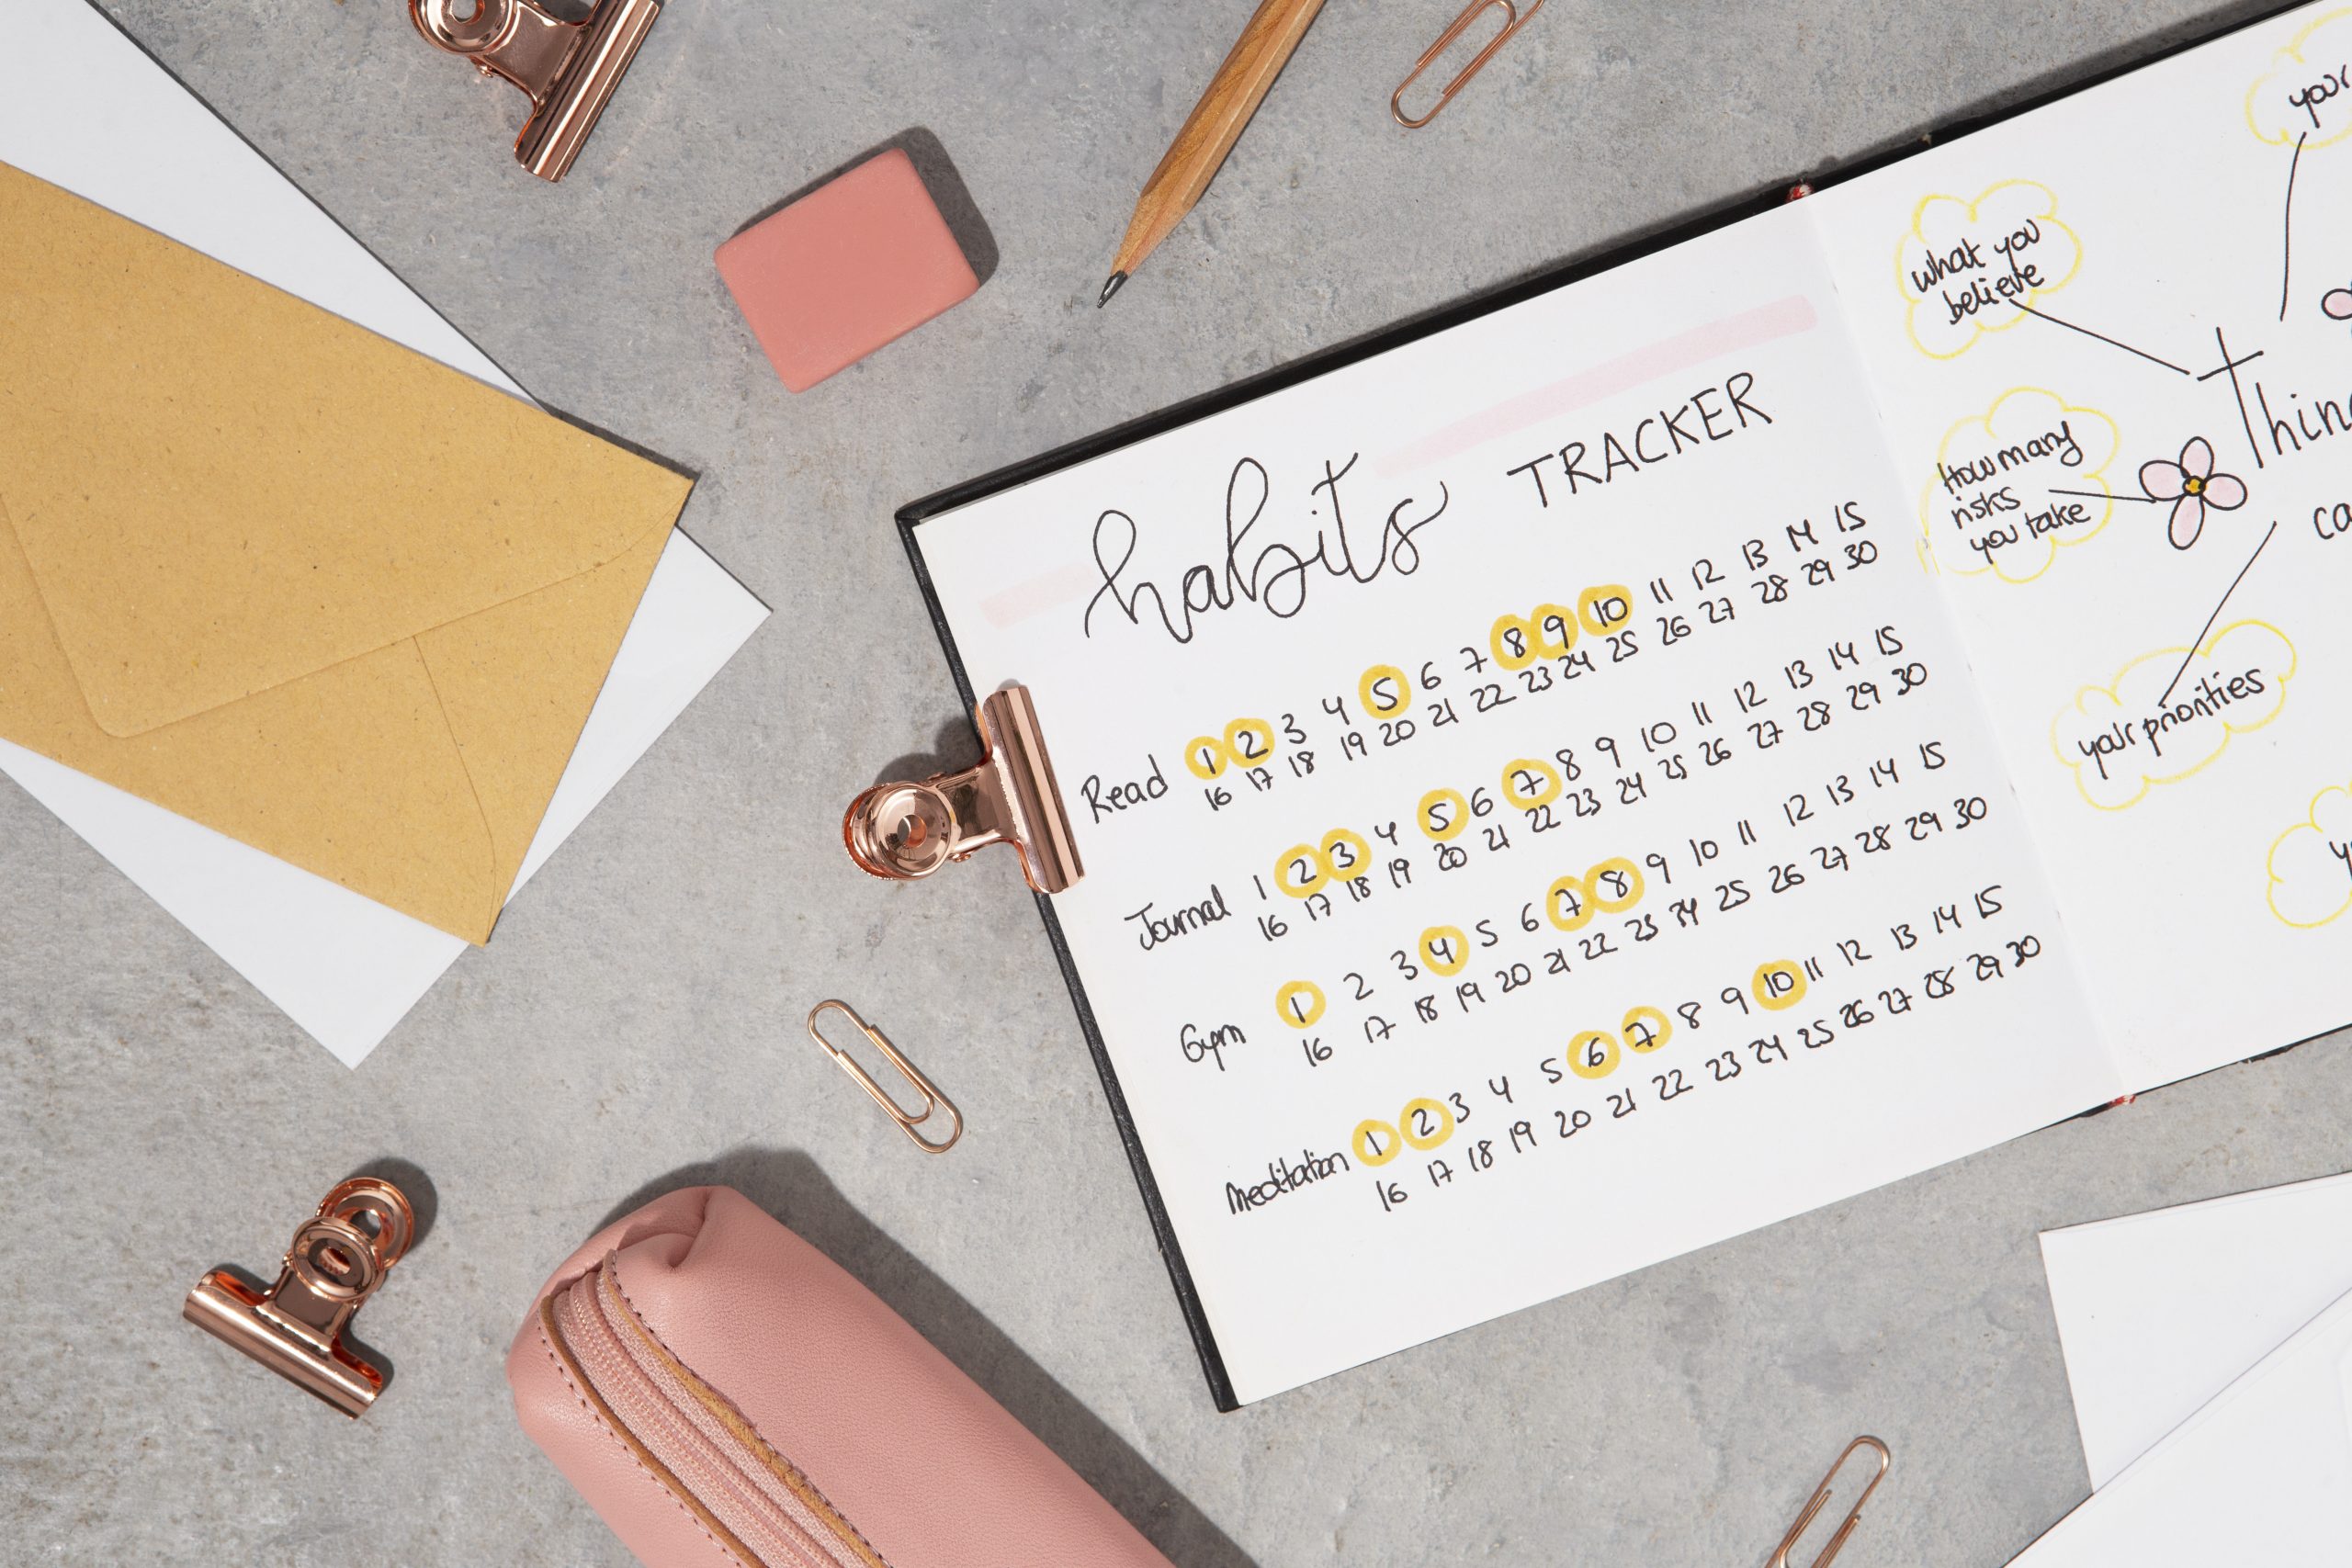 habits TRACKER
Read 1 2 3 4 5 6 7 8 9 10 11 12 13 14 15
16 17 18 19 20 21 22 23 24 25 26 27 28 29 30
Journal 1 2 3 4 5 6 7 8 9 10 11 12 13 14 15
16 17 18 19 20 21 22 23 24 25 26 27 28 29 30
Gym 1 2 3 4 5 6 7 8 9 10 11 12 13 14 15
16 17 18 19 20 21 22 23 24 25 26 27 28 29 30
Meditation 1 2 3 4 5 6 7 8 9 10 11 12 13 14 15
16 17 18 19 20 21 22 23 24 25 26 27 28 29 30
your
what you
believe
How many
risks
you take
your priorities